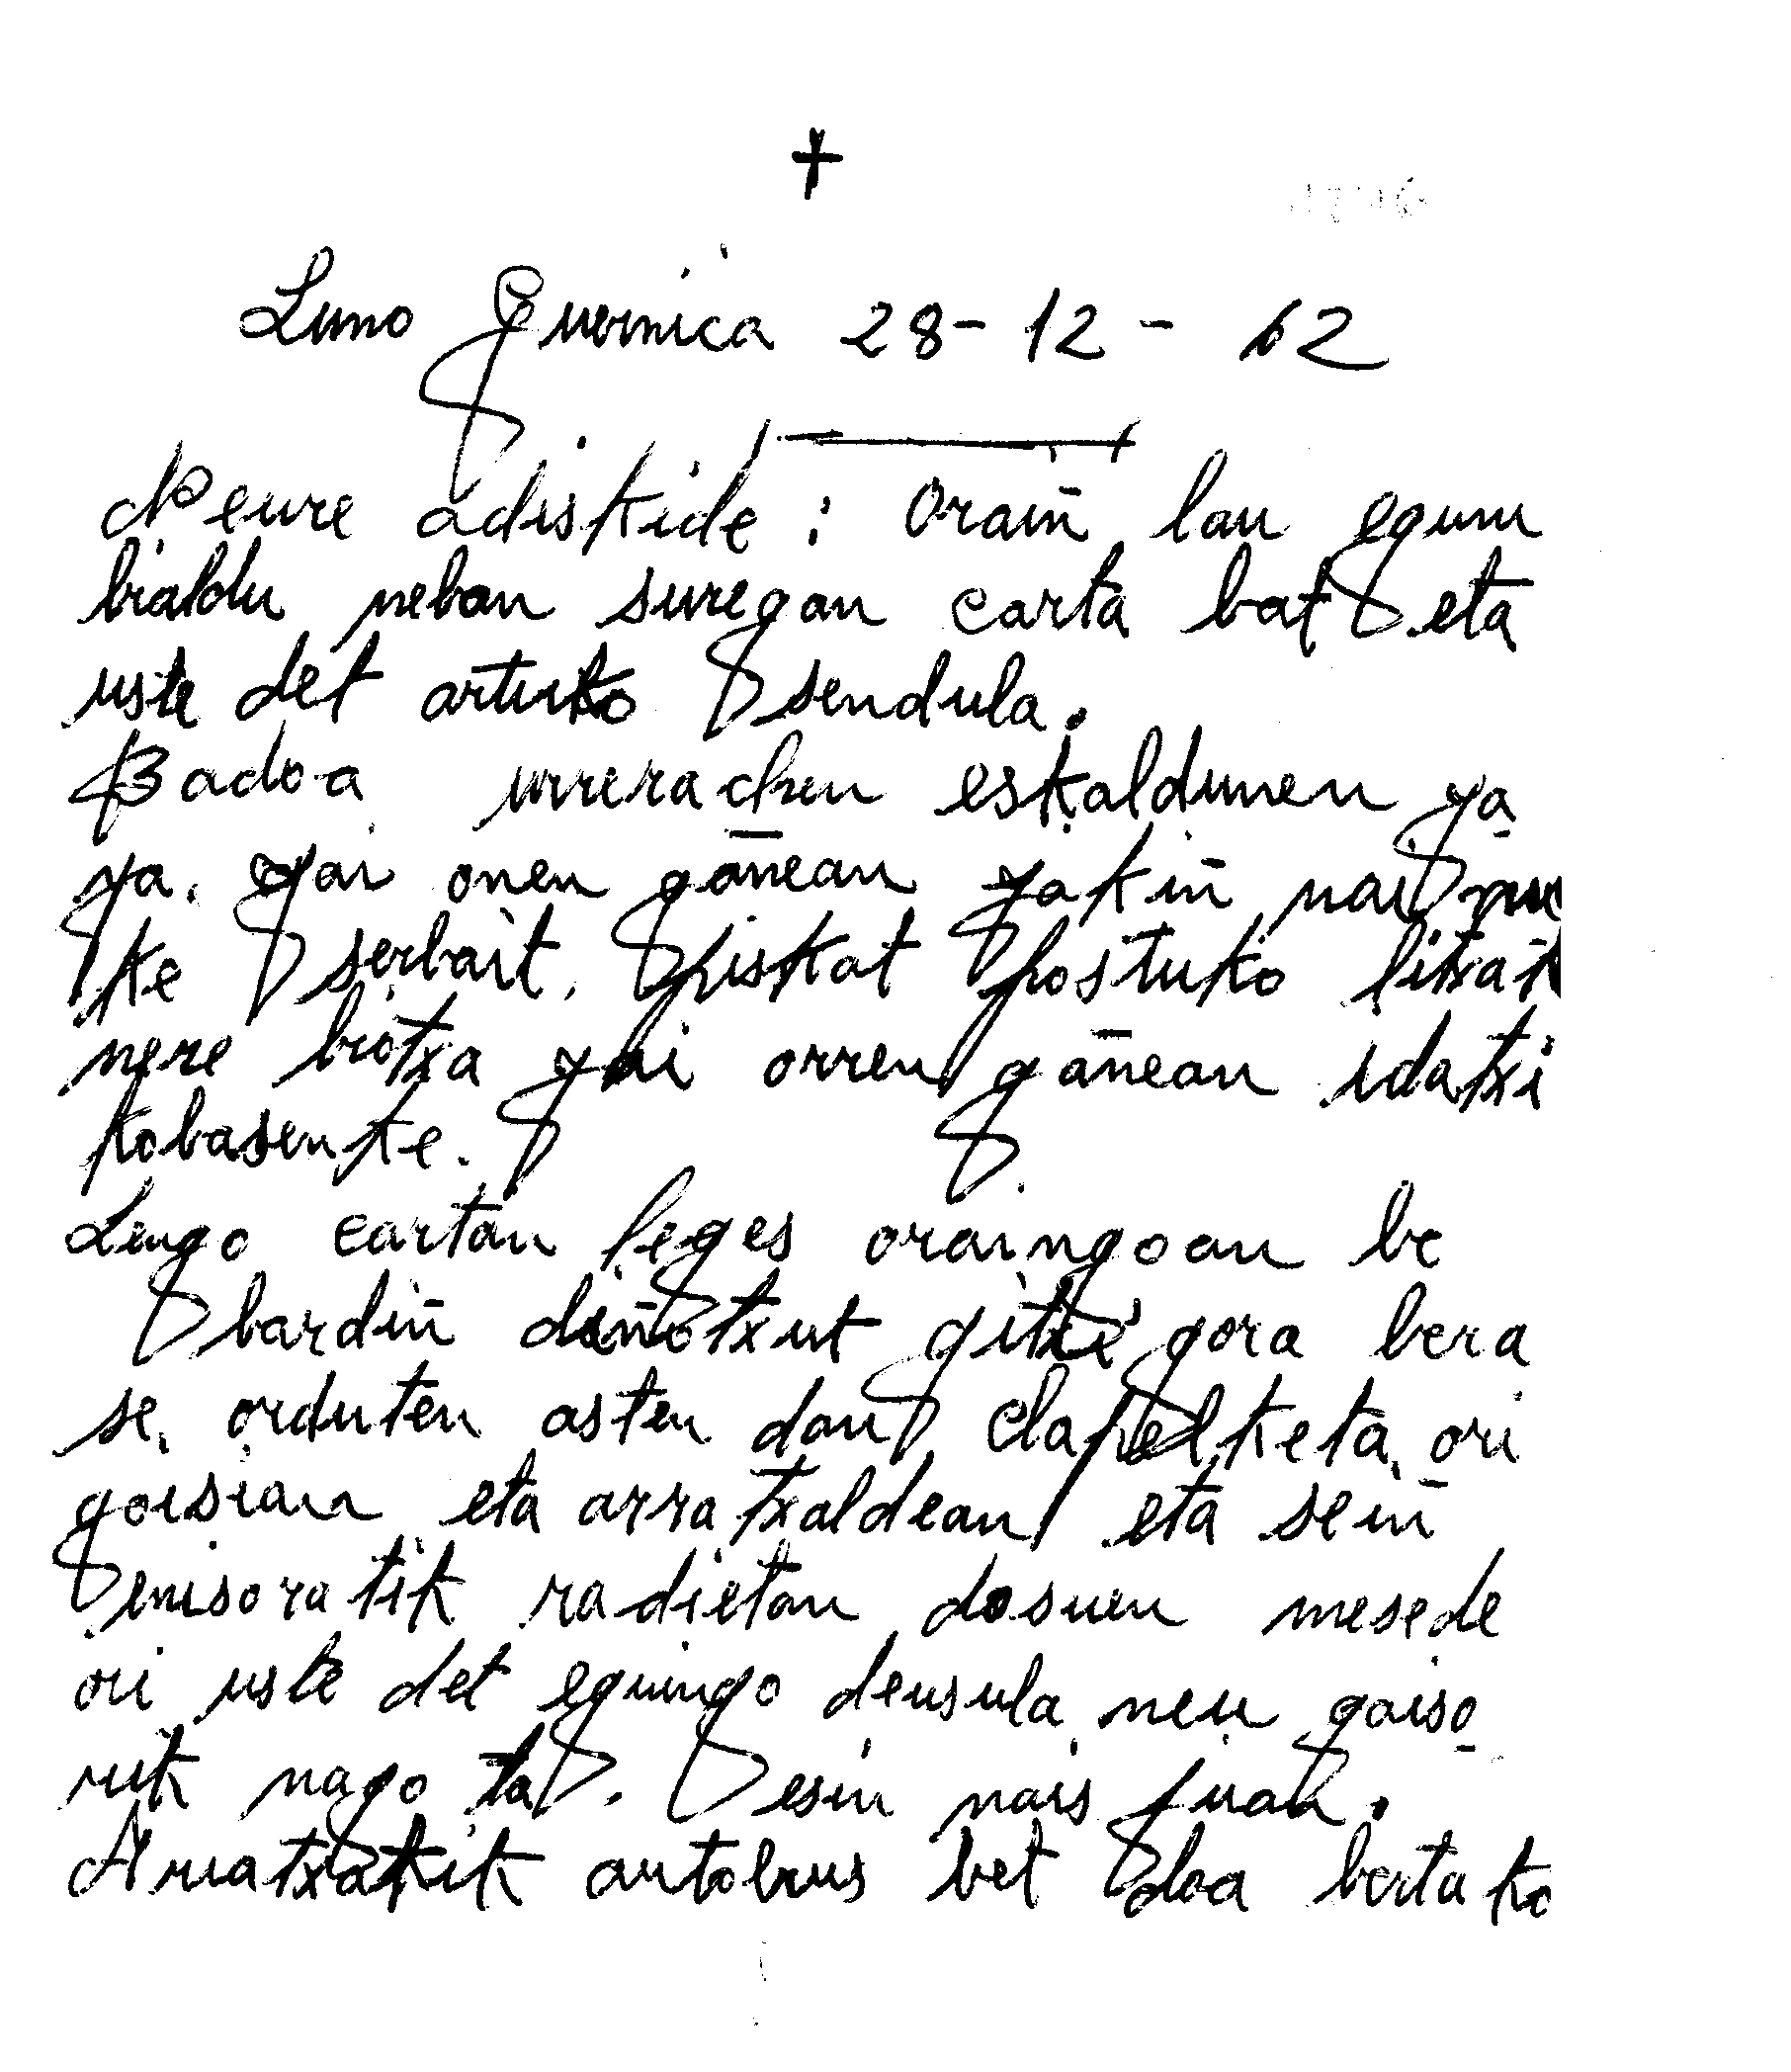 ✝
Luno Guernica 28-12-62
Neure adiskide: Orain̄ lau egun
bialdu neban suregan carta bat eta
uste det artuko sendula.
Badoa urrerachen eskaldunen ja
ya. gai onen gan̄ean jakin̄ nai nu
ke serbait. piskat postuko litxat
nere biotxa gai orren gan̄ean idatxi
kobasenke.
Lengo cartan leges oraingoan be
bardin̄ din̄otxut gitxi gora bera
se orduten asten dan elapelketa ori
goisian eta arratxaldean eta sein̄
emisoratik radietan dosuen mesede
ori uste det eguingo deusula neu gaiso
rik nago ta. esin nais juan.
Aruatxatik autobus bet doa bertako